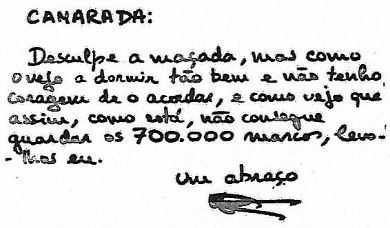 CAMARADA:
Desculpe a maçada, mas como
o vejo a dormir tão bem e não tenho
coragem de o acordar, e como vejo que
assim, como está, não consegue
guardar os 700.000 marcos, levo-
-lhos eu.
Um abraço